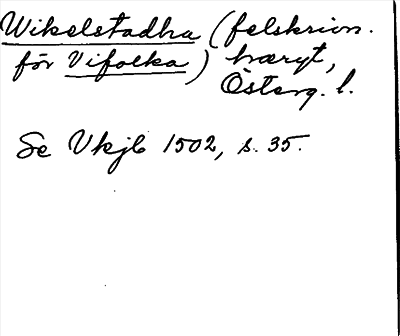 Wikelstadha (felskrivn.
för Vifolka) hæryt,
Österg. l.
Se Vkjb 1502, s. 35.